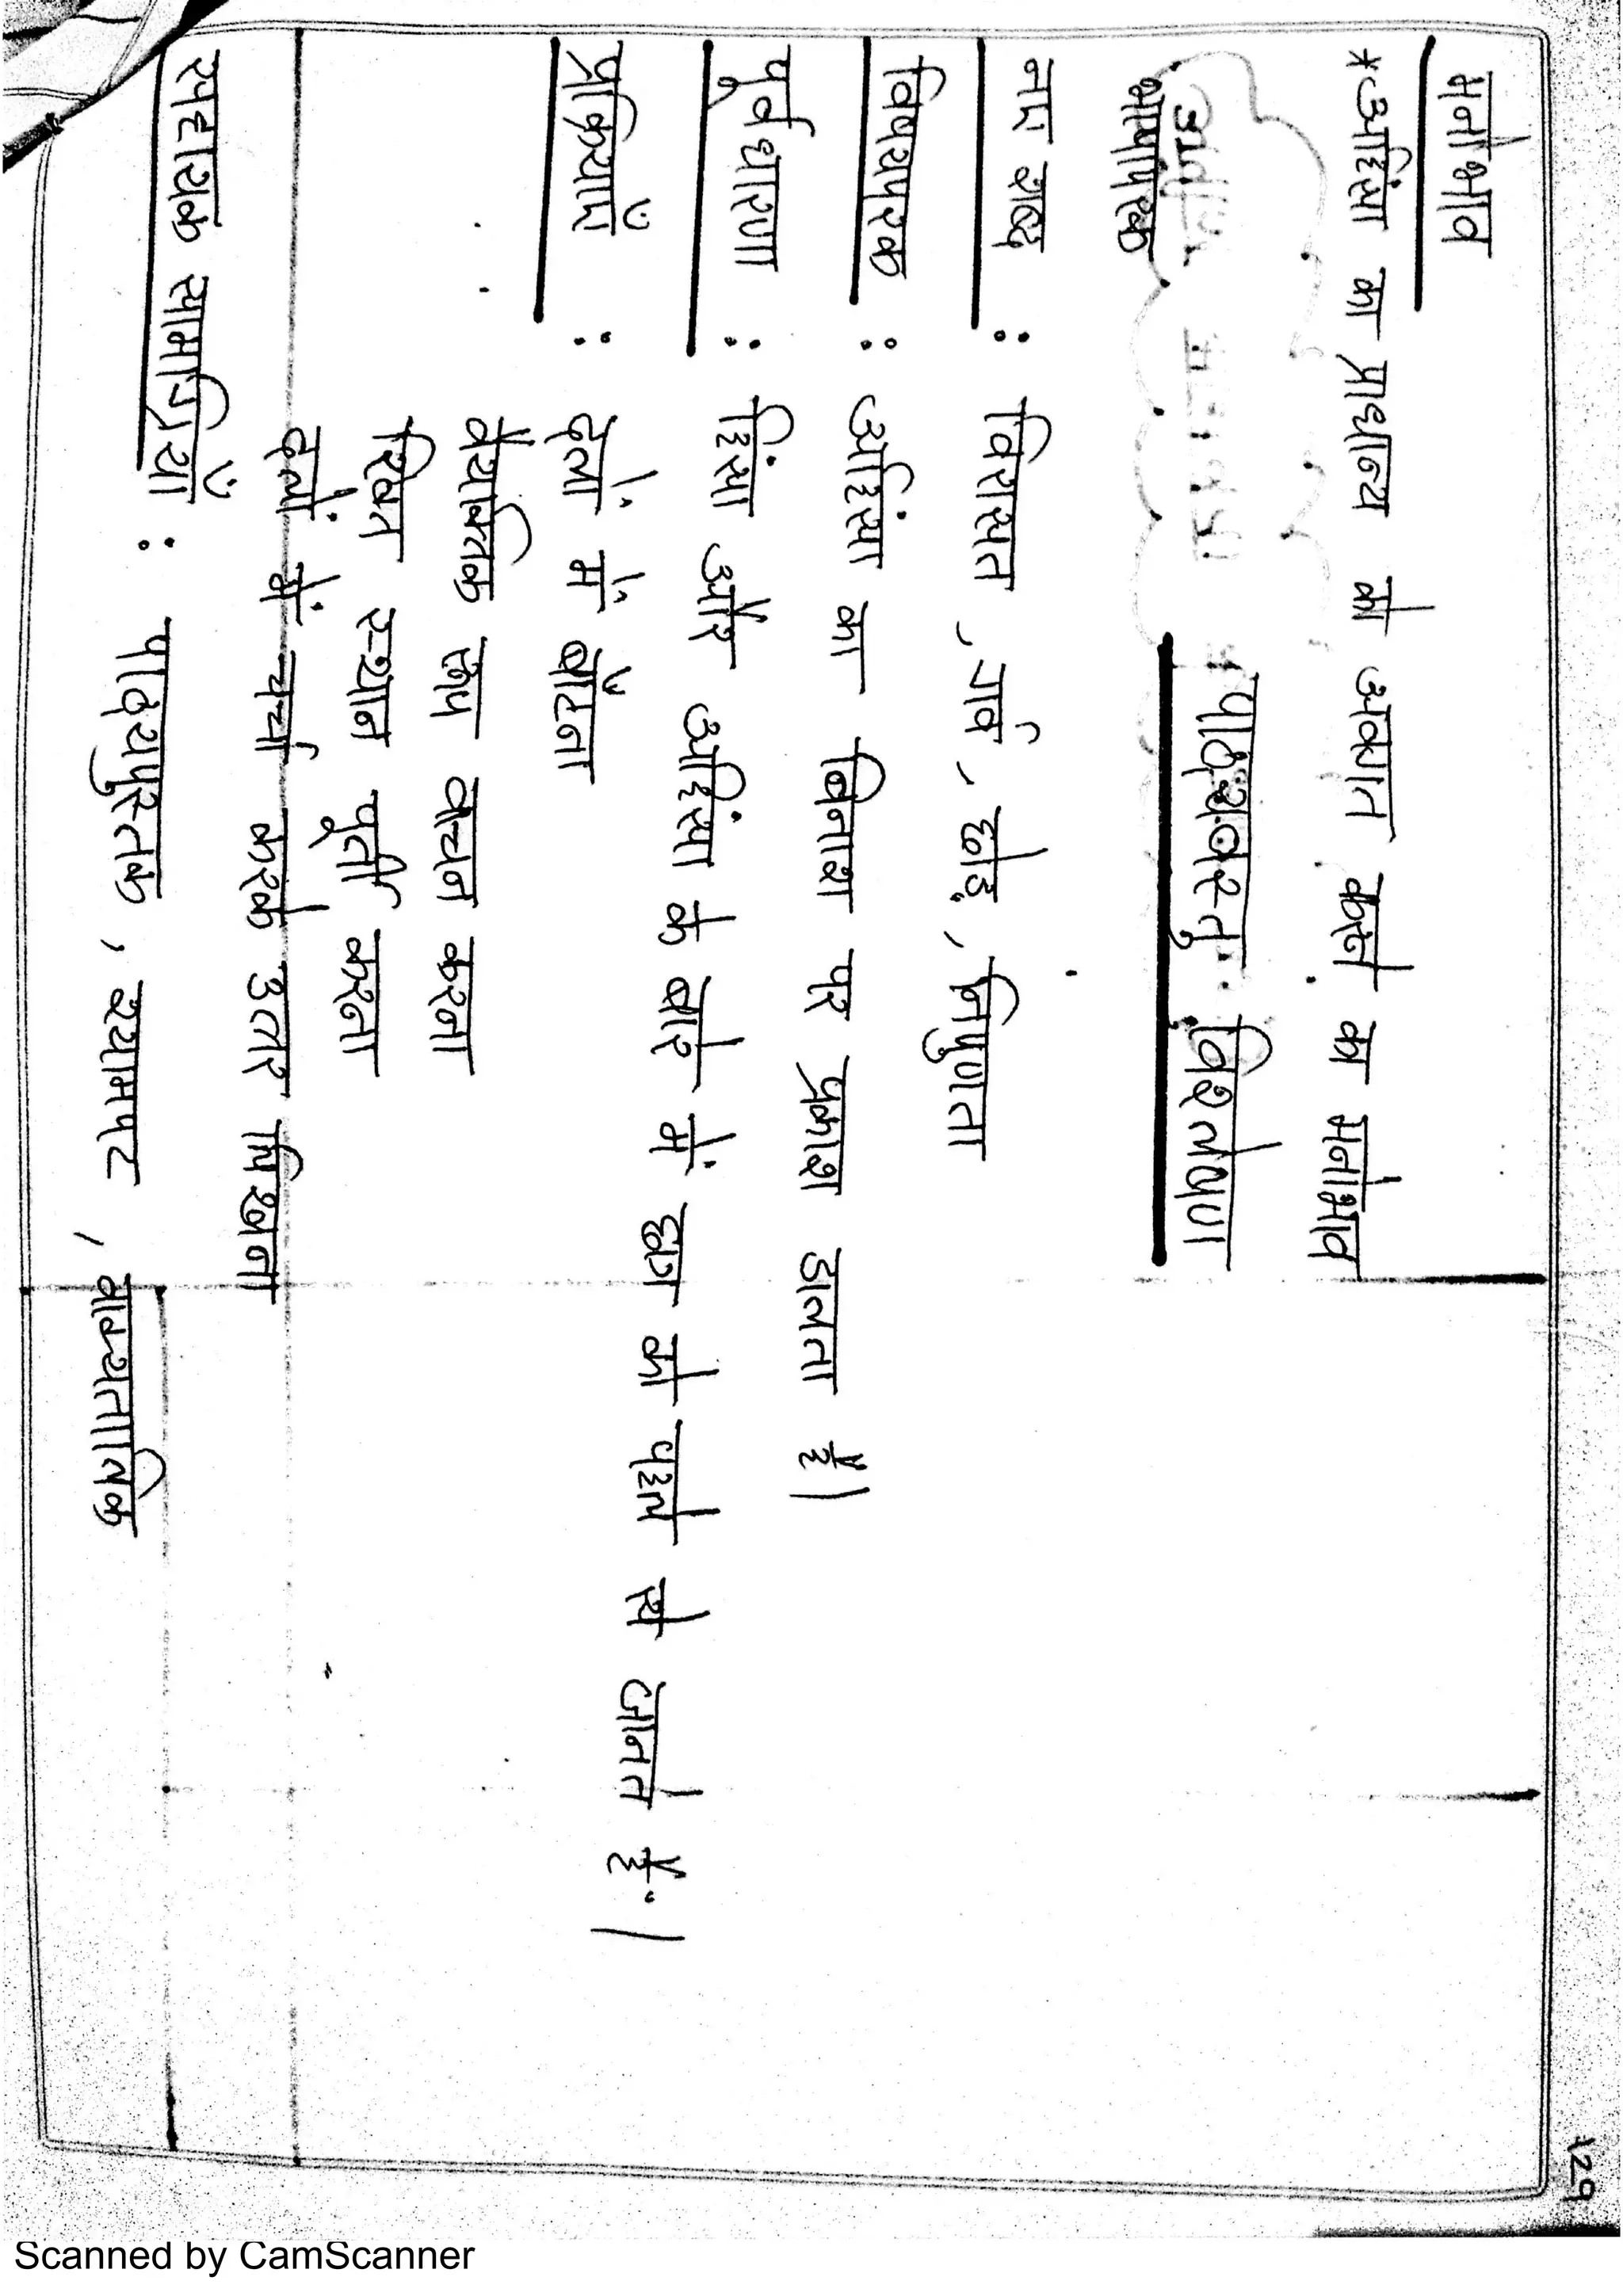 129
मनोभाव
*अहिंसा का प्राधान्य को अवगत करने का मनोभाव
पाठ्यवस्तु विश्लेषण
भाषापरक
नए शब्द : विरासत , गर्व , छोड़ , निपुणता
विषयपरक : अहिंसा का विनाश पर प्रकाश डालता है।
पूर्व धारणा : हिंसा और अहिंसा के बारे में छात्र को पहले से जानते हैं।
प्रक्रियाएँ : दलों में बाँटना
वैयक्तिक रूप वाचन करना
रिक्त स्थान पूर्ती करना
दलों में चर्चा करके उत्तर लिखना
सहायक सामग्रियाँ : पाठ्यपुस्तक , श्यामपट ,
Scanned by CamScanner